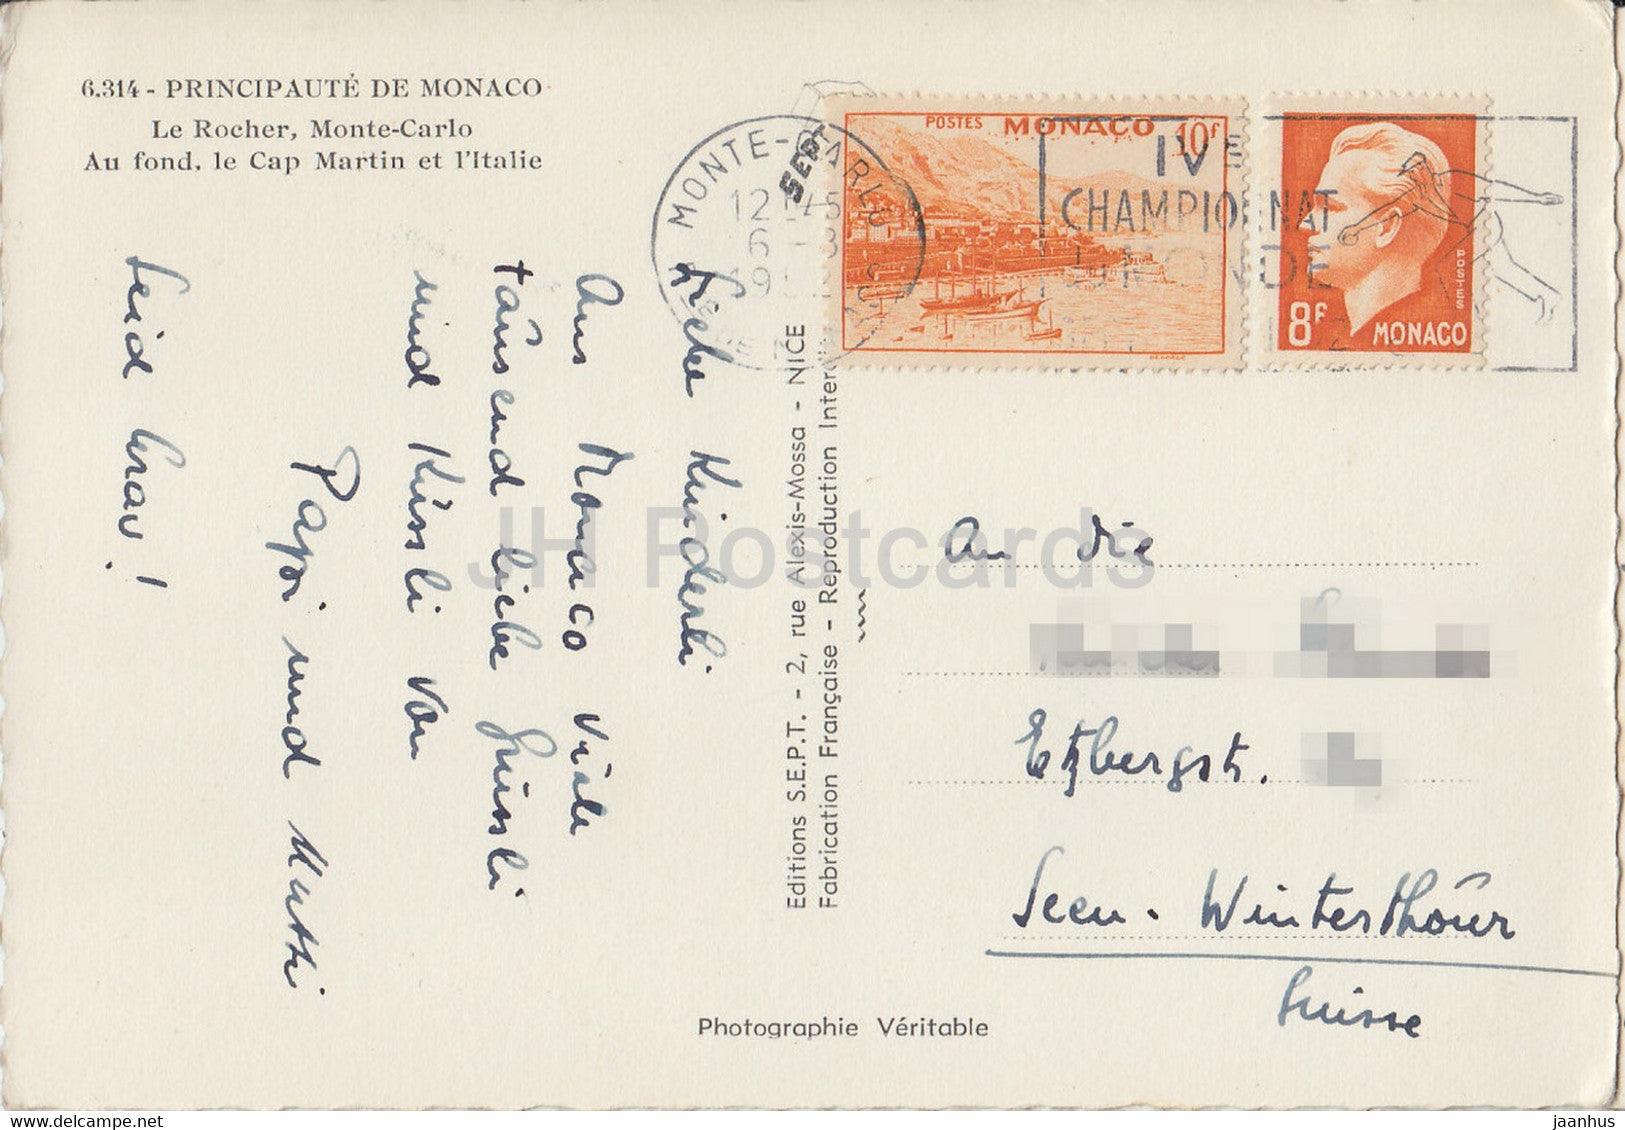 6.314 - PRINCIPAUTÉ DE MONACO
Le Rocher, Monte-Carlo
Au fond, le Cap Martin et l'Italie
MONTE-CARLO
12 45
6 - 3
SEPT
POSTES MONACO 10f
IVE
CHAMPIONNAT
DU MONDE
8f MONACO
POSTES
Liebe Kinderli
Aus Monaco viele
tausend liebe Grüssli
und Küssli von
Papi und Mutti
Seid brav!
Editions S.E.P.T. - 2, rue Alexis-Mossa - NICE
Fabrication Française - Reproduction Inter
An die
Etzbergstr.
Seen - Winterthur
Suisse
Photographie Véritable
JH Postcards
hippostcard.com
jaanhus